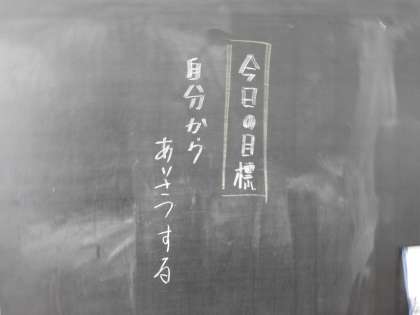 今日の目標
自分から
あいさつする